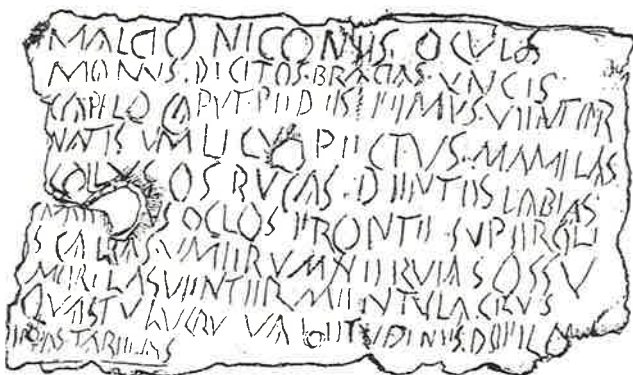 MALCIO NICONIIS· OCVLOS
MANVS·DICITOS·BRACIAS·VNCIS
CAPILO CAPVT·PIIDIIS IIIMVS·VIINTIIR
NATIS VMLICVS PIICTVS·MAMILAS
COLLVS OS BVCAS·DIINTIIS LABIAS
OCLOS IIRONTII·SVPIIRCILI
SCAPLAS VMIIRVM NIIRVIAS OSSV
MIIRILAS VIINTIIR MIINTVLA CRVS
QVASTV LVCRV VALIITVDINIIS·DIIFICO
IN AS TABIILAS